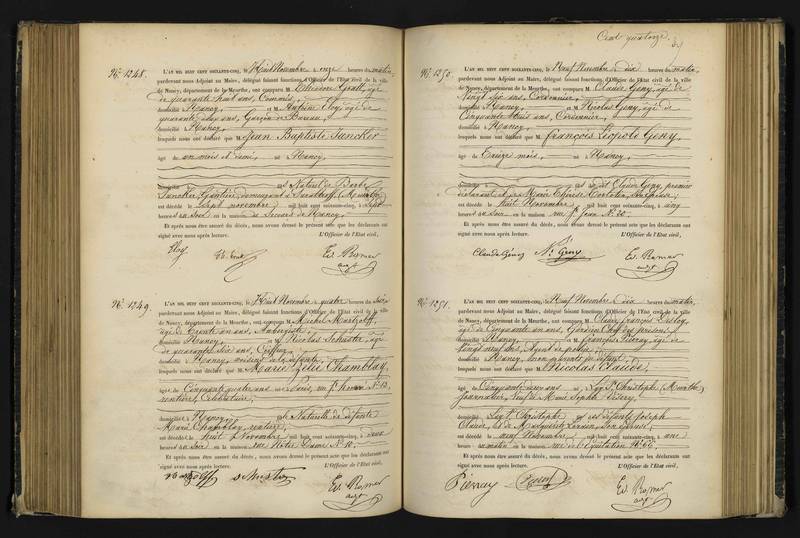 No. 1248.
L'AN MIL HUIT CENT SOIXANTE-CINQ, le Huit Novembre à onze heures du matin,
pardevant nous Adjoint au Maire, délégué faisant fonctions d'Officier de l'Etat civil de la ville
de Nancy, département de la Meurthe, ont comparu M. âgé
de quarante huit ans, Commis,
domicilié à Nancy, et M. Antoine Eloy, âgé de
quarante deux ans, Garçon de Bureau,
domicilié à Nancy,
lesquels nous ont déclaré que M. Jean Baptiste Tuncker
âgé de un mois et demi, né à Nancy,
domicilié à fils Naturel de Barbe
Tuncker, demeurant à Saraltroff (Meurthe)
est décédé le sept novembre mil huit cent soixante-cinq, à sept
heures du Soir en la maison de Secours de Nancy.
Et après nous être assuré du décès, nous avons dressé le présent acte que les déclarants ont
signé avec nous après lecture. L'Officier de l'Etat civil,
Eloy
Ed. Romer
adjt
No. 1249.
L'AN MIL HUIT CENT SOIXANTE-CINQ, le Huit Novembre à quatre heures du soir,
pardevant nous Adjoint au Maire, délégué faisant fonctions d'Officier de l'Etat civil de la ville
de Nancy, département de la Meurthe, ont comparu M. Michel
âgé de trente un ans, Aubergiste,
domicilié à Nancy, et M. Nicolas Schuster, âgé
de quarante six ans, Coiffeur,
domicilié à Nancy, voisins de la défunte,
lesquels nous ont déclaré que M. Marie Zélie Chamblay,
âgée de Cinquante quatre ans née à Paris, No. 13,
rentière, Célibataire,
domiciliée à Nancy, fille Naturelle de défunte
Marie Chamblay, rentière,
est décédée le huit Novembre mil huit cent soixante-cinq, à
heures du Soir en la maison rue Notre Dame No. 10.
Et après nous être assuré du décès, nous avons dressé le présent acte que les déclarants ont
signé avec nous après lecture. L'Officier de l'Etat civil,
Schuster
Ed. Romer
adjt
Cent quatorze.
No. 1250.
L'AN MIL HUIT CENT SOIXANTE-CINQ, le Neuf Novembre à dix heures du matin,
pardevant nous Adjoint au Maire, délégué faisant fonctions d'Officier de l'Etat civil de la ville
de Nancy, département de la Meurthe, ont comparu M. Claude Geny, âgé de
vingt six ans, Cordonnier,
domicilié à Nancy, et M. Nicolas Geny, âgé de
Cinquante trois ans, Cordonnier,
domicilié à Nancy,
lesquels nous ont déclaré que M. François Léopold Geny,
âgé de Treize mois, né à Nancy,
domicilié à fils du dit Claude Geny, premier
déclarant et de Marie Thérèse son épouse,
est décédé le huit Novembre mil huit cent soixante-cinq, à cinq
heures du Soir en la maison rue St. Jean No. 20.
Et après nous être assuré du décès, nous avons dressé le présent acte que les déclarants ont
signé avec nous après lecture. L'Officier de l'Etat civil,
Claude Geny
Ns. Geny
Ed. Romer
adjt
No. 1251.
L'AN MIL HUIT CENT SOIXANTE-CINQ, le Neuf Novembre à dix heures du matin,
pardevant nous Adjoint au Maire, délégué faisant fonctions d'Officier de l'Etat civil de la ville
de Nancy, département de la Meurthe, ont comparu M. Claude François
âgé de Cinquante un ans, Gardien Chef des prisons,
domicilié à Nancy, et M. François Pierray, âgé de
vingt neuf ans, Agent de police,
domicilié à Nancy, non parents du défunt,
lesquels nous ont déclaré que M. Nicolas Claude,
âgé de Cinquante ans né à Lay St. Christophe (Meurthe)
journalier, veuf de Marie Sophie
domicilié à Lay St. Christophe fils des défunts Joseph
Claude, et de Marguerite son épouse,
est décédé le neuf Novembre mil huit cent soixante-cinq, à une
heure du matin en la maison rue de l'Equitation No. 66.
Et après nous être assuré du décès, nous avons dressé le présent acte que les déclarants ont
signé avec nous après lecture. L'Officier de l'Etat civil,
Pierray
Ed. Romer
adjt